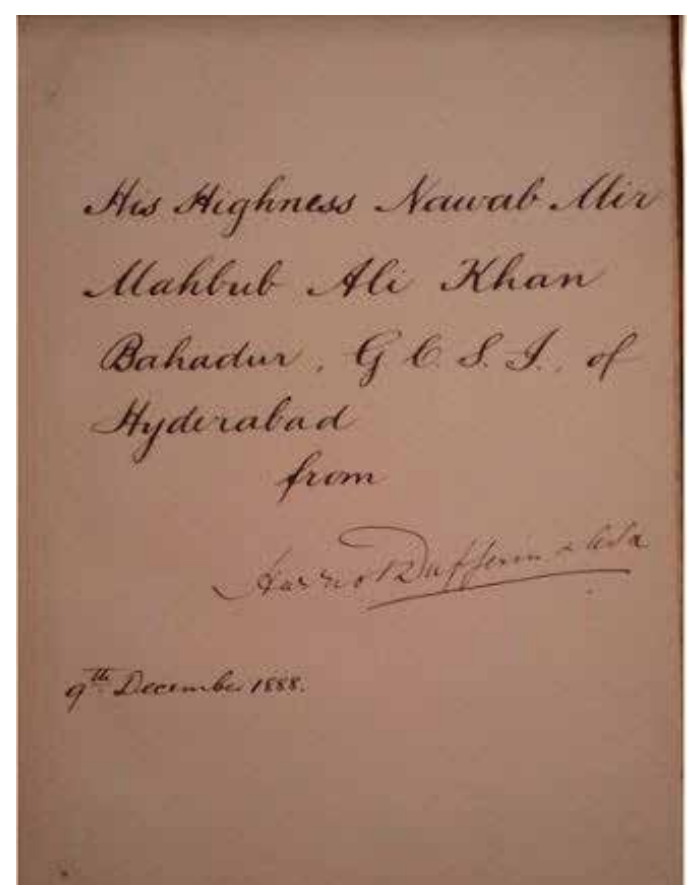 His Highness Nawab Mir
Mahbub Ali Khan
Bahadur, G.C.S.I., of
Hyderabad
from
Dufferin & Ava
9th December 1888.